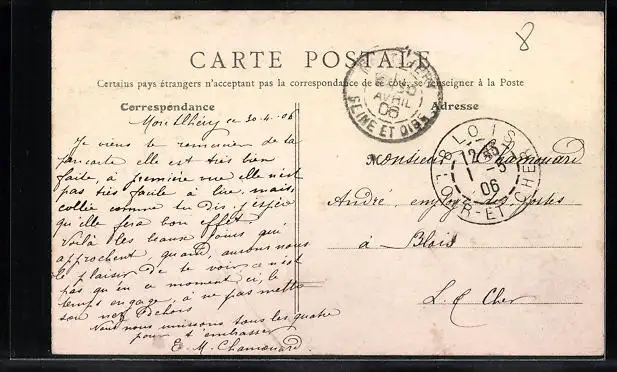 8
CARTE POSTALE
Certains pays étrangers n'acceptant pas la correspondance de ce côté, se renseigner à la Poste
Correspondance
Adresse
Montlhéry ce 30-4-06
Je viens te remercier de ta
pancarte elle est très bien
faite, à première vue elle n'est
pas très facile à lire, mais
collée comme tu dis j'espère
qu'elle fera bon effet.
Voilà les beaux jours qui
approchent, quand aurons nous
le plaisir de te voir ce n'est
pas qu'en ce moment ci, le
temps engage, à ne pas mettre
son nez dehors
Nous nous unissons tous les quatre
pour t'embrasser
E. M. Chamouard
Monsieur Chamouard
André, employé des Postes
à Blois
L. & Cher
AVRIL
06
SEINE ET OISE
BLOIS
12
1 - 5
06
LOIR-ET-CHER